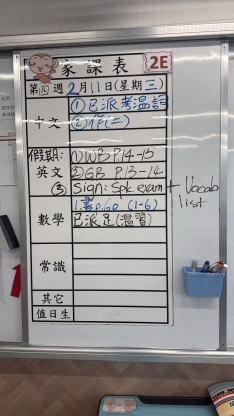 家課表 2E
第四週 2月11日(星期三)
中文 ①已派考溫詞
②作(二)
假期:
英文 ①WB P.14-15
②GB P.13-14
③ Sign: Spk. exam + Vocab list
數學 1.書p.60 (1-6)
已派是(溫習)
常識
其它
值日生